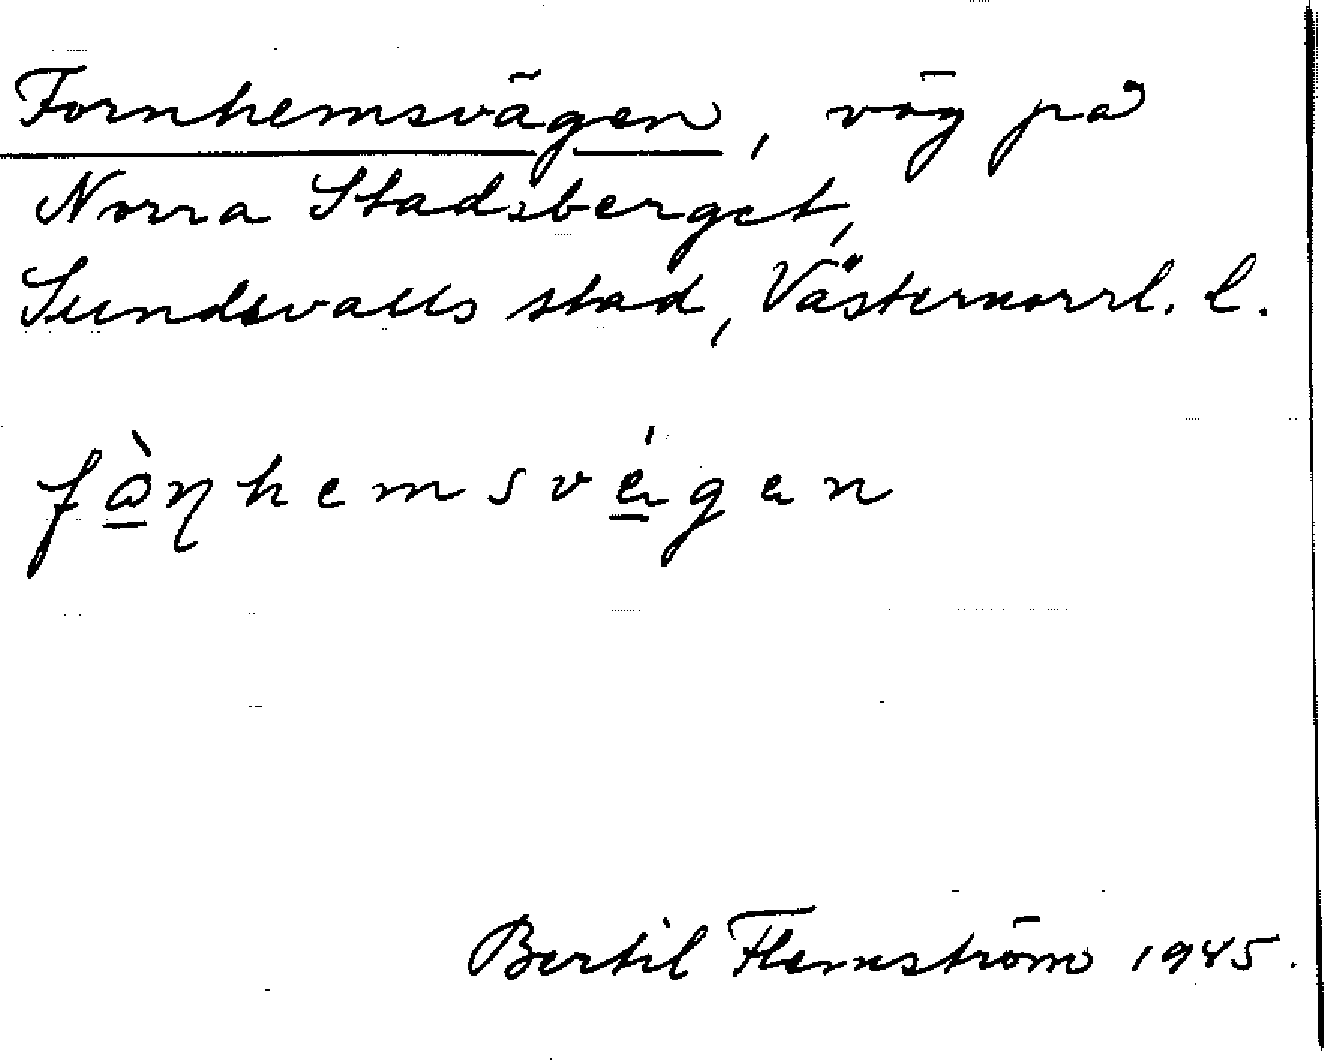 Fornhemsvägen, väg på
Norra Stadsberget,
Sundsvalls stad, Västernorrl. l.
fàɳhemsvégen
Bertil Flemström 1945.